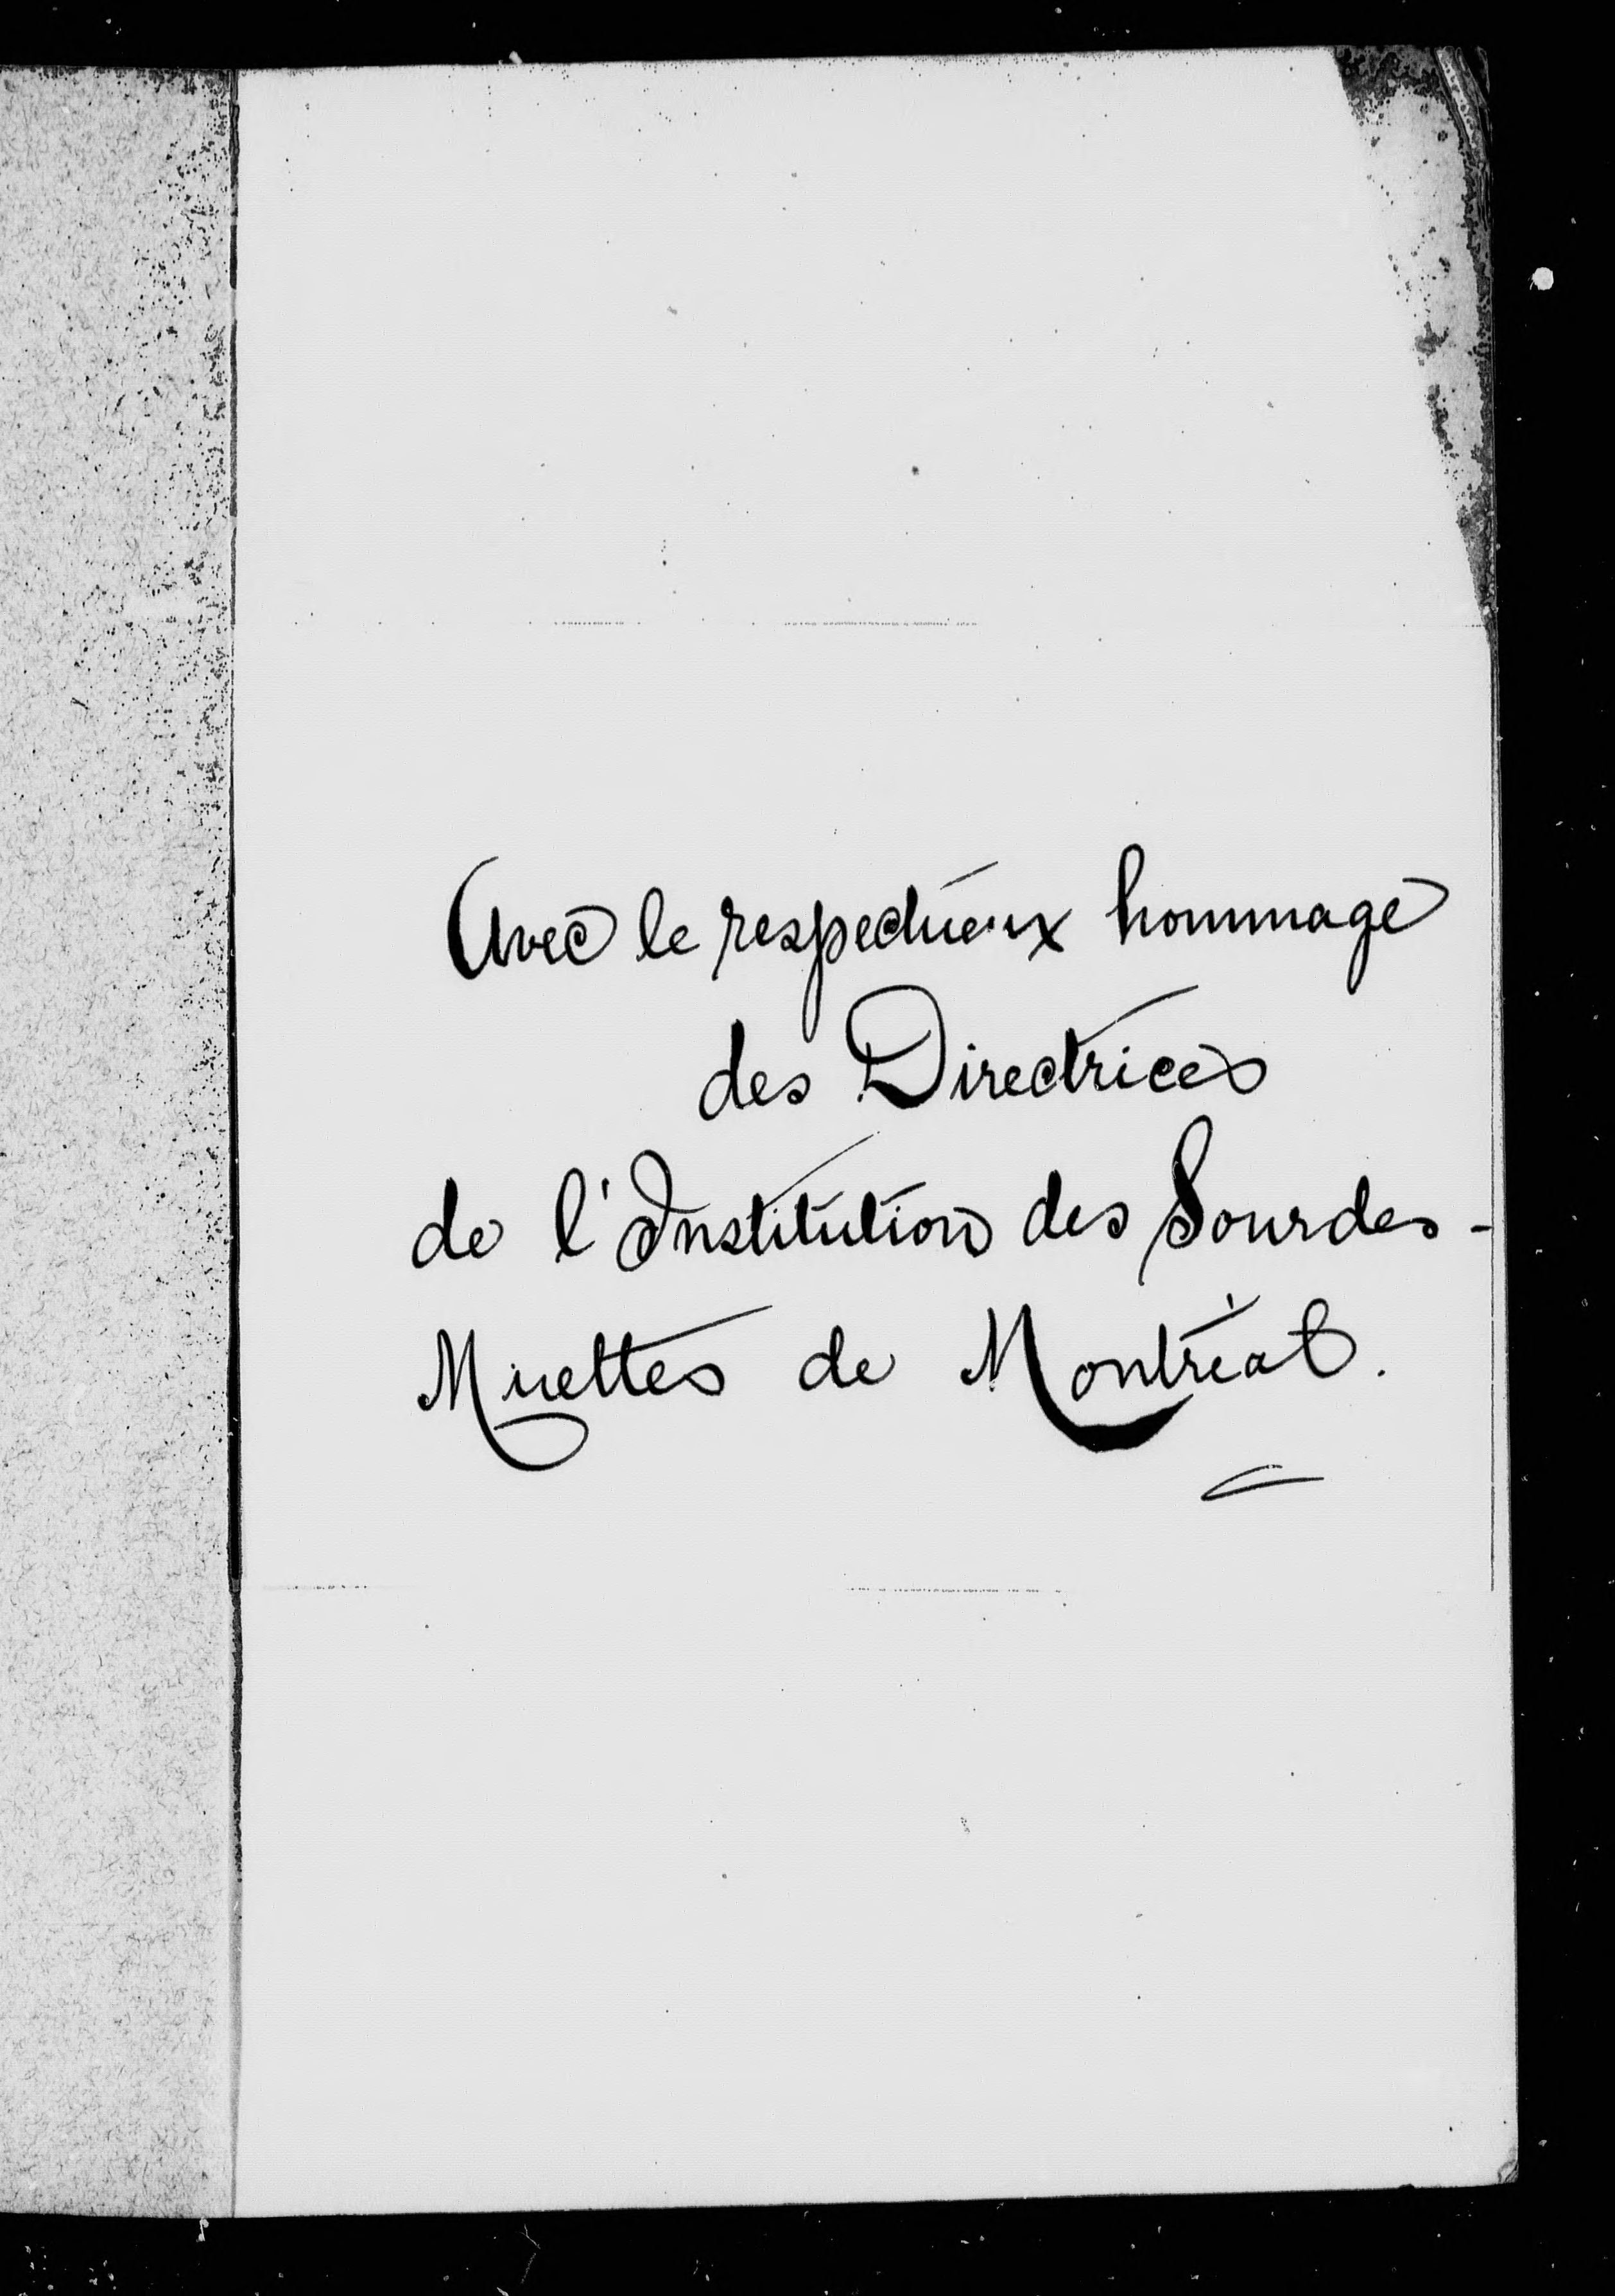 Avec le respectueux hommage
des Directrices
de l'Institution des Sourdes-
Muettes de Montréal.